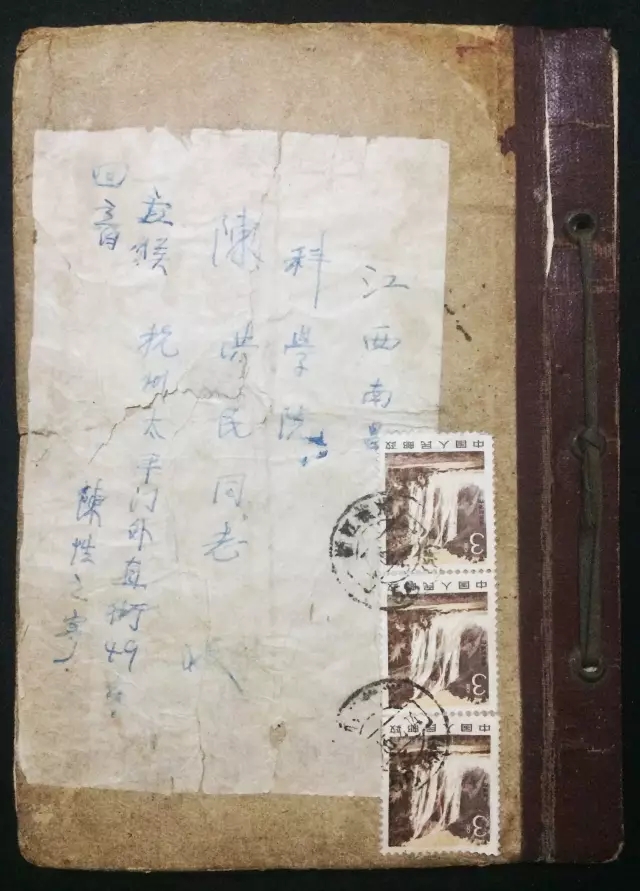 江西南昌
科學院
陳洪民同志 收
候 杭州太平门外直街49号
回音
陳性之寄
中国人民邮政
3
中国人民邮政
3
中国人民邮政
3